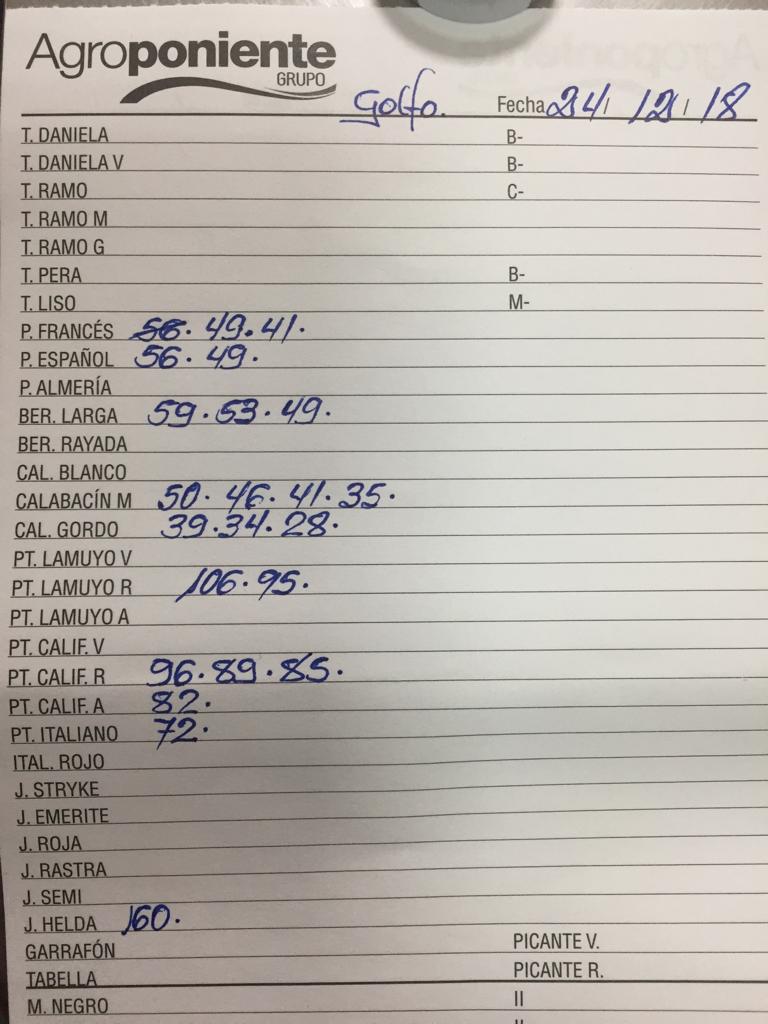 Agroponiente
GRUPO
Golfo. Fecha 24/ 12/ 18
T. DANIELA B-
T. DANIELA V B-
T. RAMO C-
T. RAMO M
T. RAMO G
T. PERA B-
T. LISO M-
P. FRANCÉS 49. 41.
P. ESPAÑOL 56. 49.
P. ALMERÍA
BER. LARGA 59. 53. 49.
BER. RAYADA
CAL. BLANCO
CALABACÍN M 50. 46. 41. 35.
CAL. GORDO 39. 34. 28.
PT. LAMUYO V
PT. LAMUYO R 106. 95.
PT. LAMUYO A
PT. CALIF. V
PT. CALIF. R 96. 89. 85.
PT. CALIF. A 82.
PT. ITALIANO 72.
ITAL. ROJO
J. STRYKE
J. EMERITE
J. ROJA
J. RASTRA
J. SEMI
J. HELDA 160.
GARRAFÓN PICANTE V.
TABELLA PICANTE R.
M. NEGRO II